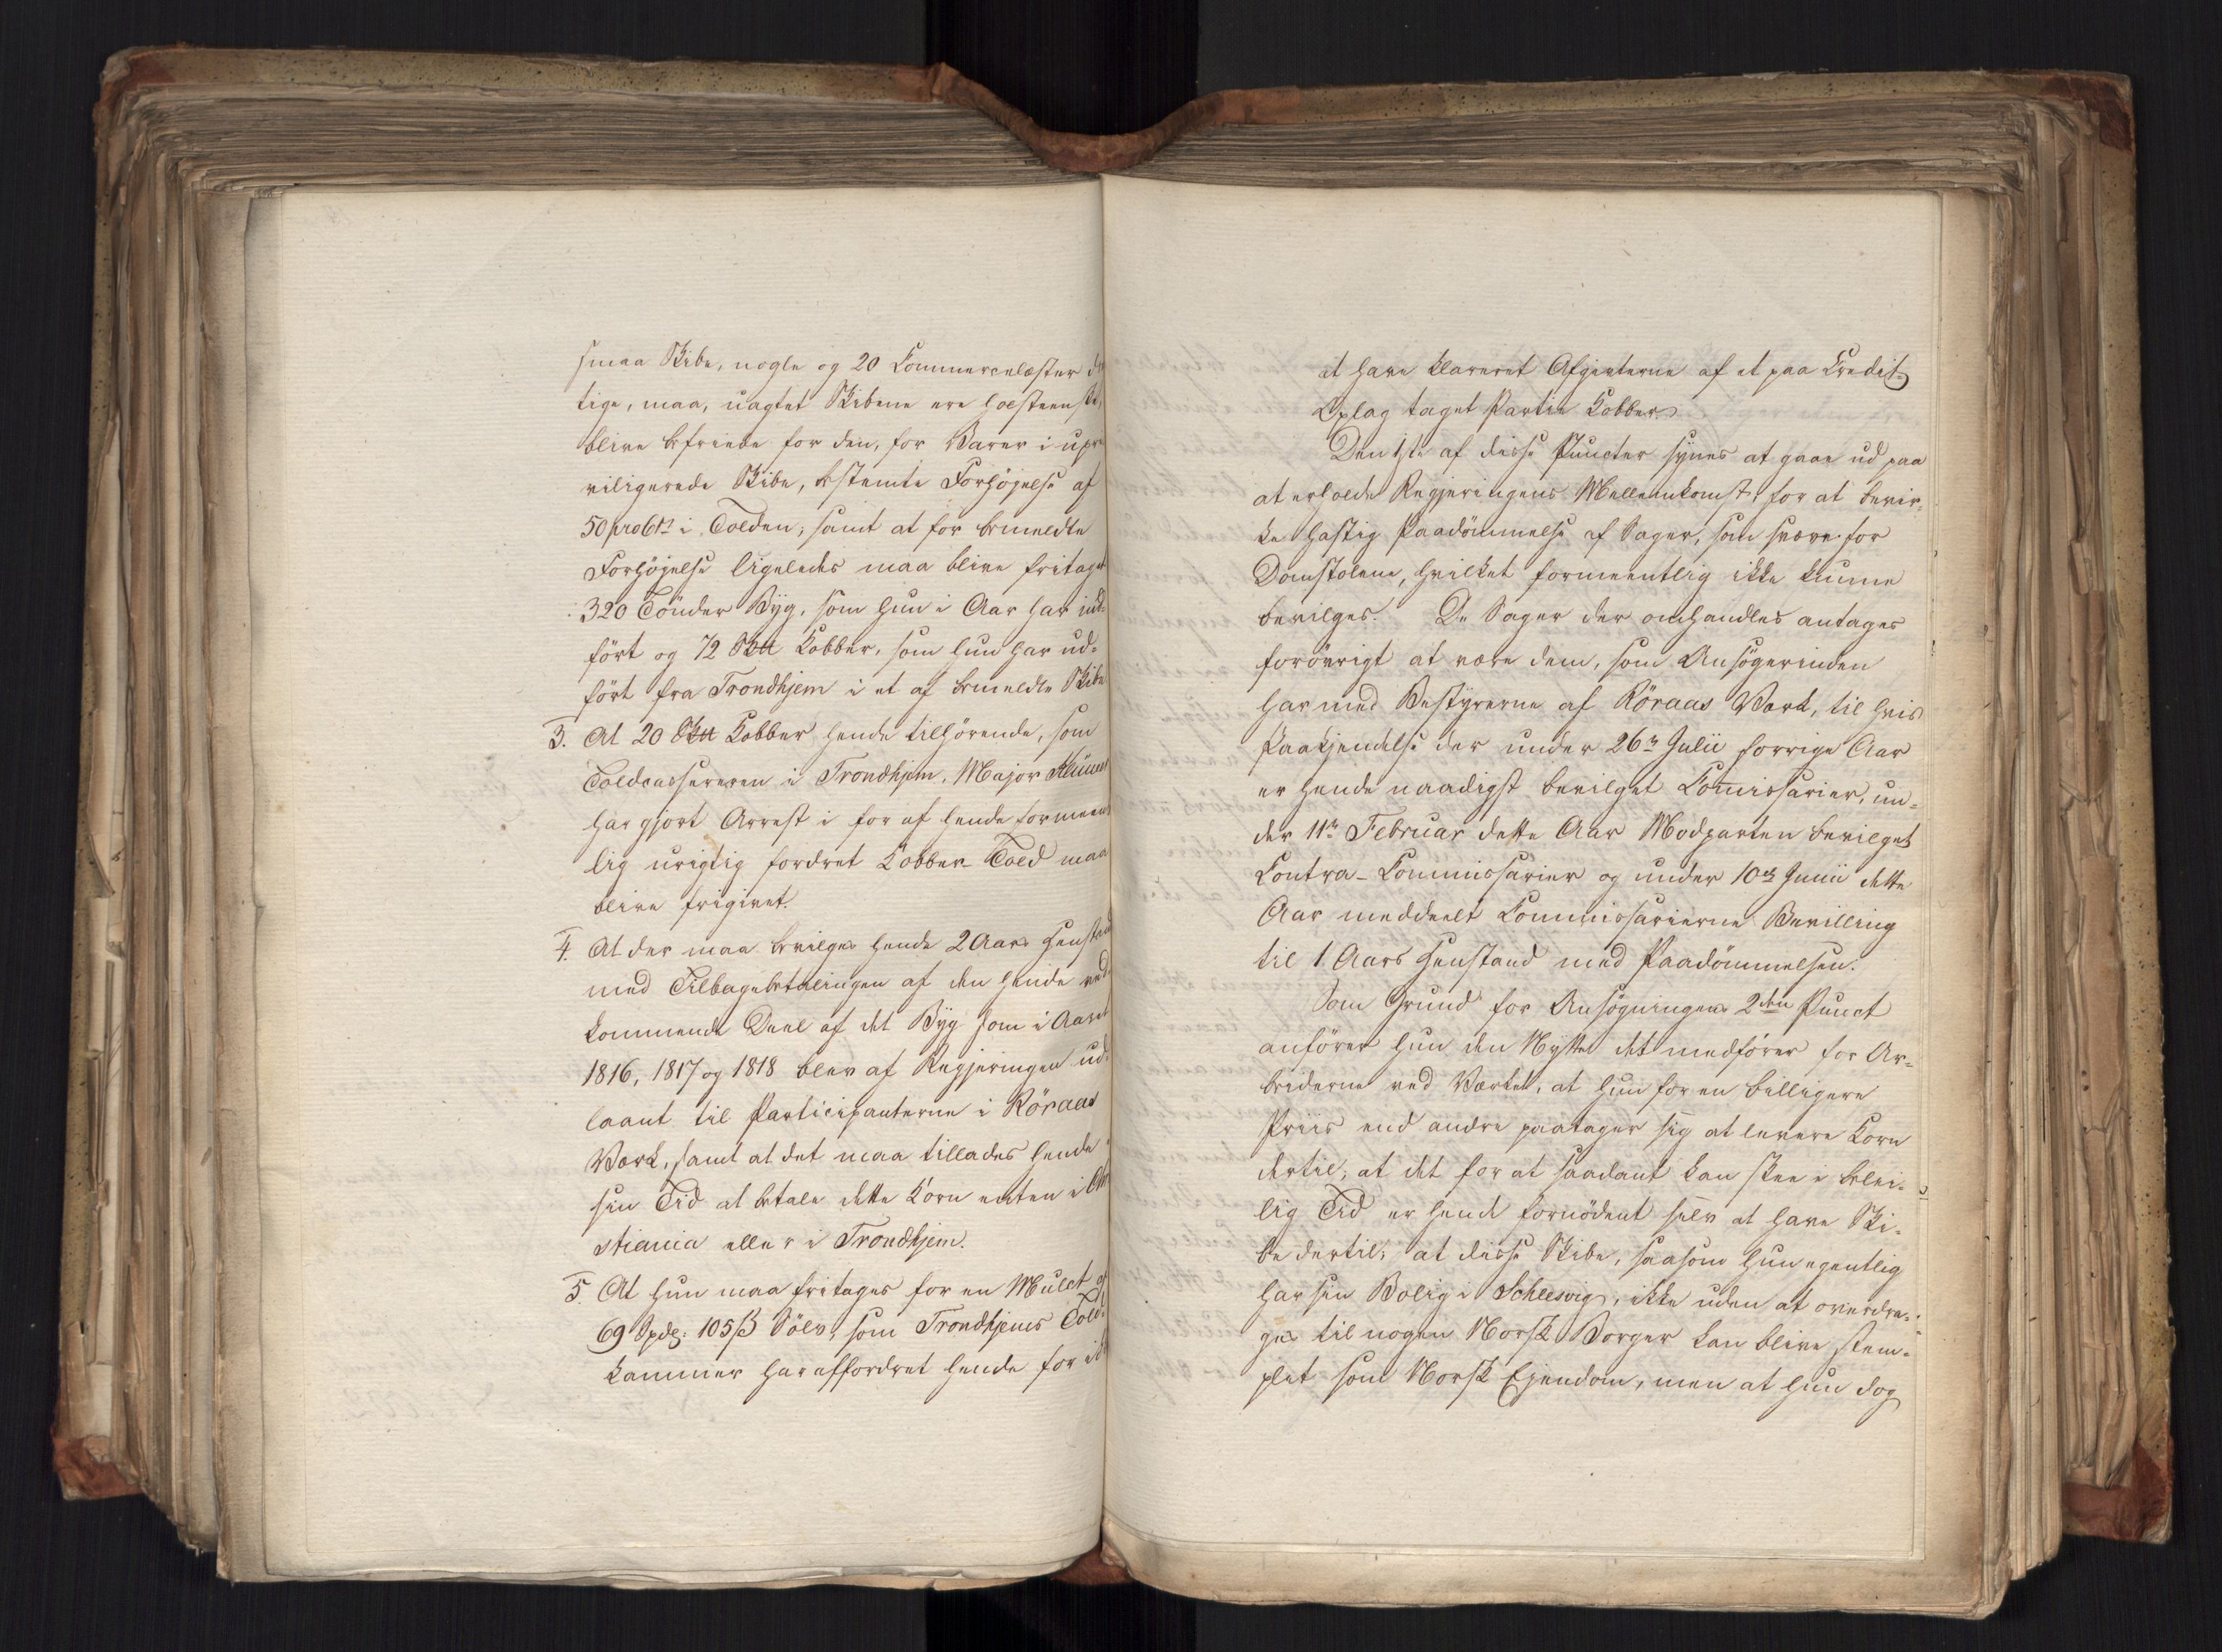 smaa Skibe, nogle og 20 Commercelæster
tige, maa, uagtet Skibene ere holsteenske,
blive befriede for den, for Varer i upri
viligerede Skibe, bestemte Forhöjelse af
50 proCt i Tolden, samt at for bemeldte
Forhöjelse ligeledes maa blive fritaget
320 Tönder Byg, som hun i Aar har ind-
fört og 72 Sktt Kobber, som hun har ud-
fört fra Trondhjem i et af bemeldte Skibe
3. At 20 Sktt Kobber hende tilhörende, som
Toldcassereren i Trondhjem, Major
har gjort Arrest i for af hende formeent
lig urigtig fordret Kobber-Told maa
blive frigivet.
4. At der maa bevilges hende 2 Aars Henstand
med Tilbagebetalingen af den hende ved-
kommende Deel af det Byg som i Aaret
1816, 1817 og 1818 blev af Regjeringen ud-
laant til Participanterne i Röraas
Værk, samt at det maa tillades hende i
sin Tid at betale dette Korn enten i Chri
stiania eller i Trondhjem.
5. At hun maa fritages for en Mulct af
69 Spdlr: 105 ß Sölv, som Trondhjems Told-
kammer har affordret hende for ikke
at have klareret Afgivterne af et paa Credit-
Oplag taget Partie Kobber.
Den 1ste af disse Puncter synes at gaae ud paa
at erholde Regjeringens Mellemkomst for at bevir-
ke hastig Paadömmelse af Sager, som svæve for
Domstolene, hvilket formeentlig ikke kunne
bevilges. De Sager der omhandles antages
forövrigt at være dem, som Ansögerinden
har med Bestyrerne af Röraas Værk, til hvis
Paakjendelse der under 26de Julii forrige Aar
er hende naadigst bevilget Commissarier, un-
der 11te Februar dette Aar Modparten bevilget
Contra-Commissarier og under 10de Junii dette
Aar meddeelt Commissarierne Bevilling
til 1 Aars Henstand med Paadömmelsen.
Som Grund for Ansögningens 2den Punct
anförer hun den Nytte det medförer for Ar-
beiderne ved Værket, at hun for en billigere
Priis end andre paatager sig at levere Korn
dertil, at det for at saadant kan skee i belei-
lig Tid er hende fornödent selv at have Ski-
be dertil, at disse Skibe, saasom hun egentlig
har sin Bolig i Schleswig, ikke uden at overdra-
ges til nogen Norsk Borger kan blive stem-
plet som Norsk Ejendom, men at hun dog